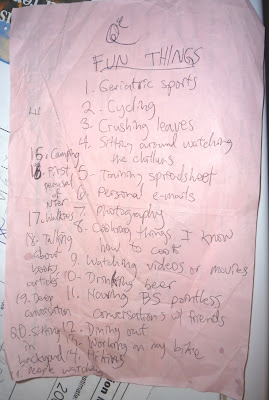 FUN THINGS
1. Geriatric sports
2. Cycling
3. Crushing leaves
4. Sitting around watching
the chillens
5. Training spreadsheet
6. Personal e-mails
7. Photography
8. Cooking things I know
how to cook
9. Watching videos or movies
10. Drinking beer
11. Having BS pointless
conversations w/ friends
12. Dining out
13. Working on my bike
14. Hiking
15. Camping
16. First
perusal
of
17. Walking
18. Talking
about
books,
articles
19. Deep
conversation
20. Sitting
in
backyard
people watching